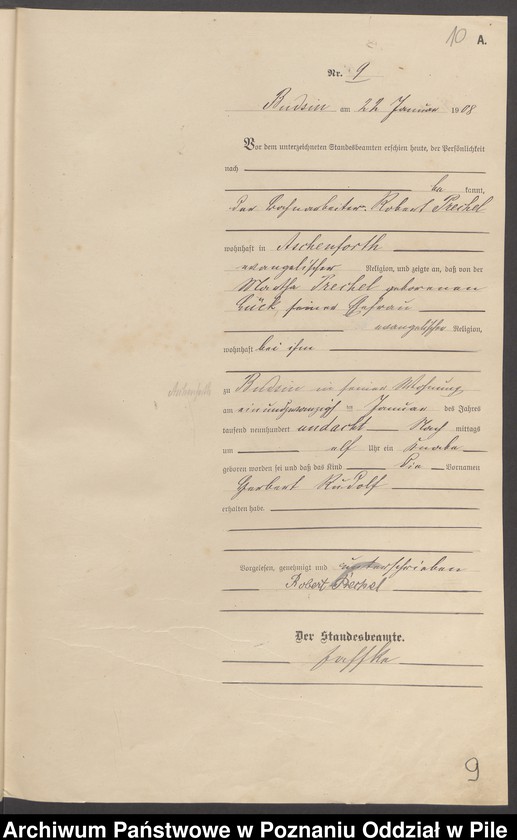 10 A.
Nr. 9
Budsin am 22 Januar 1908
Vor dem unterzeichneten Standesbeamten erschien heute, der Persönlichkeit
nach
be kannt,
der Bahnarbeiter Robert Prechel
wohnhaft in Aschenforth
evangelischer Religion, und zeigte an, daß von der
Martha Prechel geborenen
Lück, seiner Ehefrau
evangelischer Religion,
wohnhaft bei ihm
Aschenforth
zu Budsin in seiner Wohnung
am einundzwanzigsten Januar des Jahres
tausend neunhundert undacht Nach mittags
um elf Uhr ein Knabe
geboren worden sei und daß das Kind die Vornamen
Herbert Rudolf
erhalten habe.
Vorgelesen, genehmigt und unterschrieben
Robert Prechel
Der Standesbeamte.
9
Archiwum Państwowe w Poznaniu Oddział w Pile